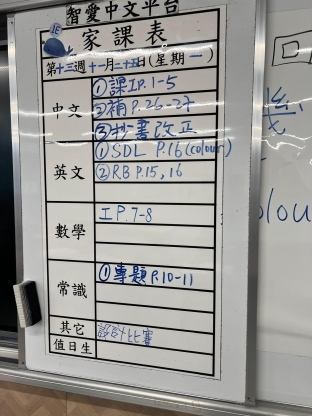 智愛中文平台
家課表
第十三週十一月二十五日(星期一)
中文
①課工P.1-5
②補P.26-27
③抄書改正
英文
①SDL P.16(colour)
②RB P.15,16
數學
工P.7-8
常識
①專題P.10-11
其它
設計比賽
值日生